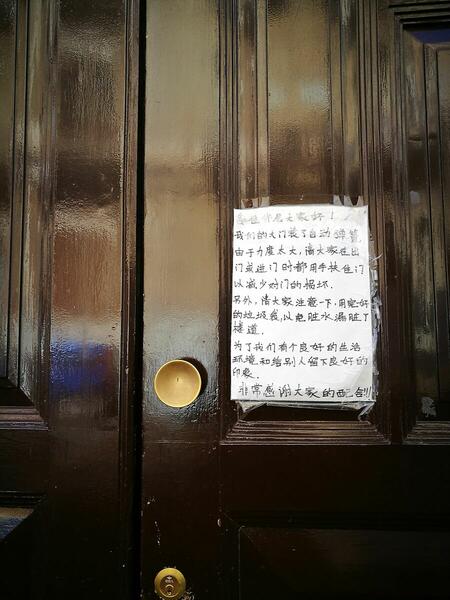 各位邻居大家好！
我们的大门装了自动弹簧,
由于力度太大,请大家在出
门或进门时都用手扶住门
以减少对门的损坏.
另外,请大家注意一下,用完好
的垃圾袋,以免脏水漏脏了
楼道.
为了我们有个良好的生活
环境和给别人留下良好的
印象.
非常感谢大家的配合!!